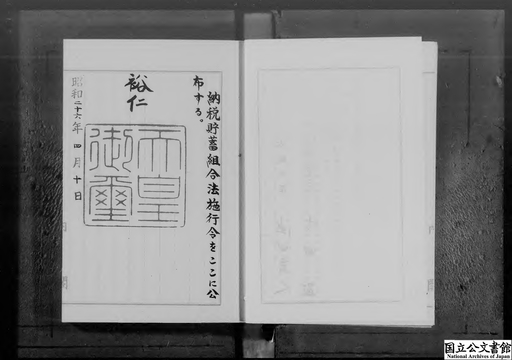 納税貯蓄組合法施行令をここに公
布する。
裕仁
天皇
御璽
昭和二十六年四月十日
国立公文書館
National Archives of Japan